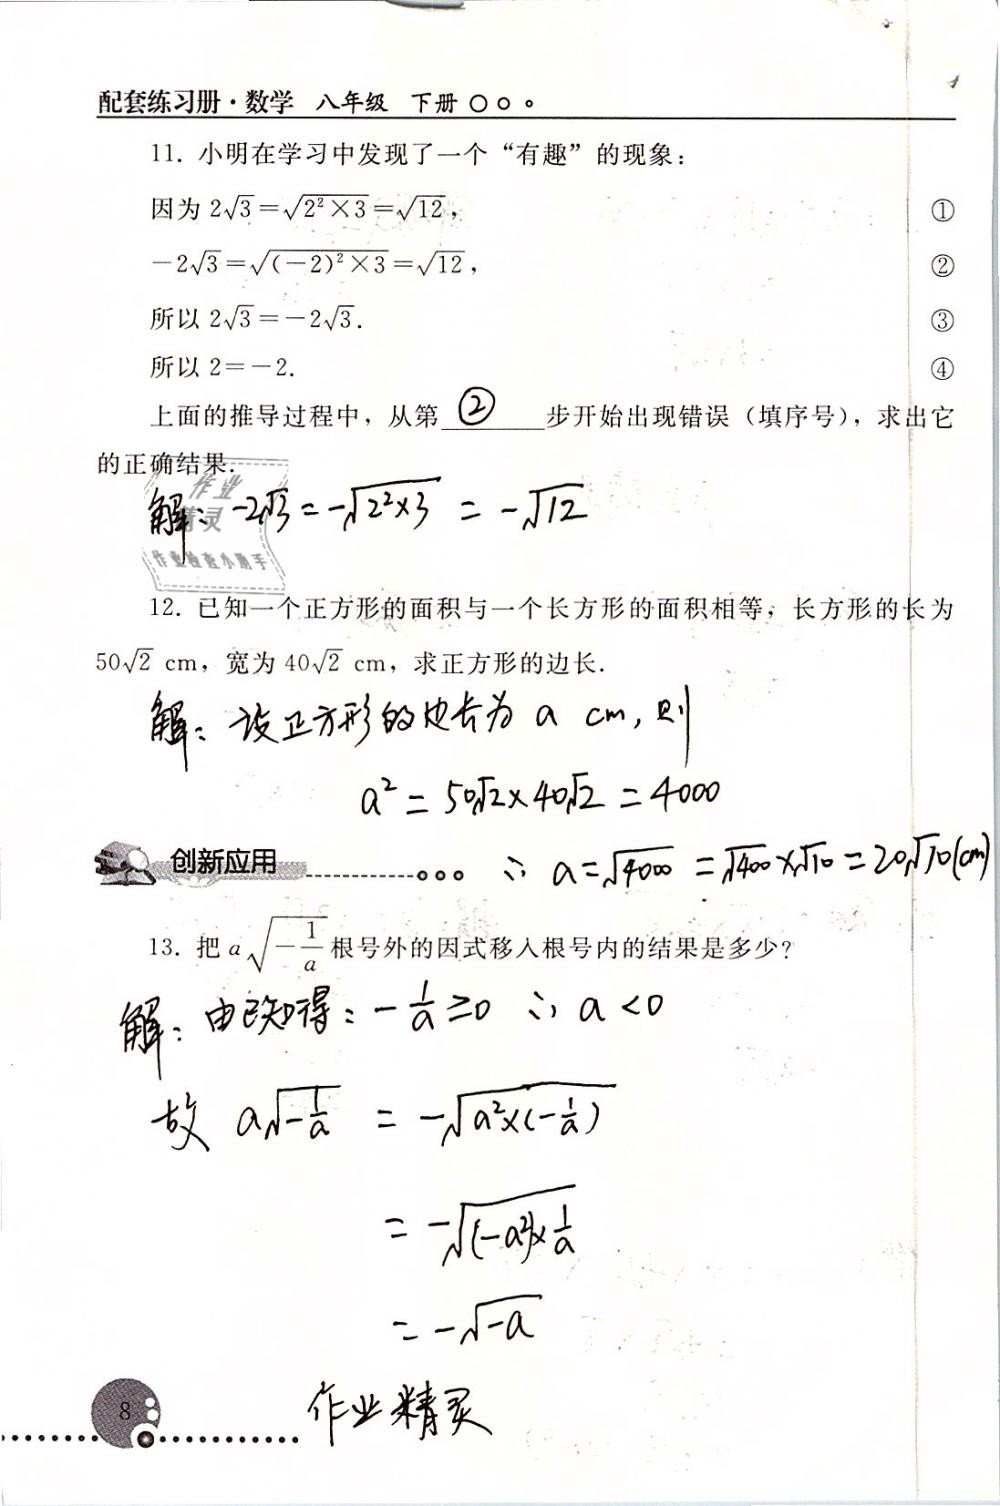 配套练习册·数学 八年级 下册
11. 小明在学习中发现了一个“有趣”的现象：
因为 2√3=√(2²×3)=√12， ①
－2√3=√((－2)²×3)=√12， ②
所以 2√3=－2√3. ③
所以 2=－2. ④
上面的推导过程中，从第 ② 步开始出现错误（填序号），求出它
的正确结果.
作业
精灵
作业检查小助手
解：-2√3=-√(2²×3) = -√12
12. 已知一个正方形的面积与一个长方形的面积相等，长方形的长为
50√2 cm，宽为 40√2 cm，求正方形的边长.
解：设正方形的边长为 a cm, 则
a² = 50√2×40√2 = 4000
创新应用
∴ a=√4000 =√400×√10=20√10(cm)
13. 把 a√(－1/a) 根号外的因式移入根号内的结果是多少？
解：由已知得：-1/a≥0 ∴ a<0
故 a√(-1/a) = -√(a²×(-1/a))
= -√((-a²)×1/a)
= -√(-a)
作业精灵
8